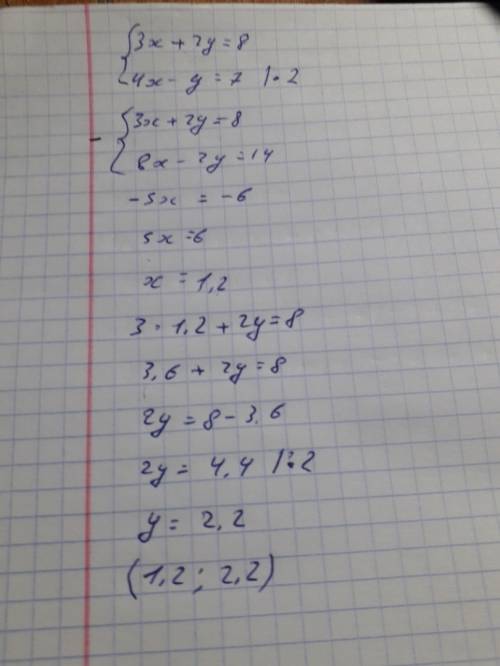 3x + 2y = 8
4x - y = 7 |·2
- 3x + 2y = 8
8x - 2y = 14
-5x = -6
5x = 6
x = 1,2
3 · 1,2 + 2y = 8
3,6 + 2y = 8
2y = 8 - 3,6
2y = 4,4 |:2
y = 2,2
(1,2 ; 2,2)